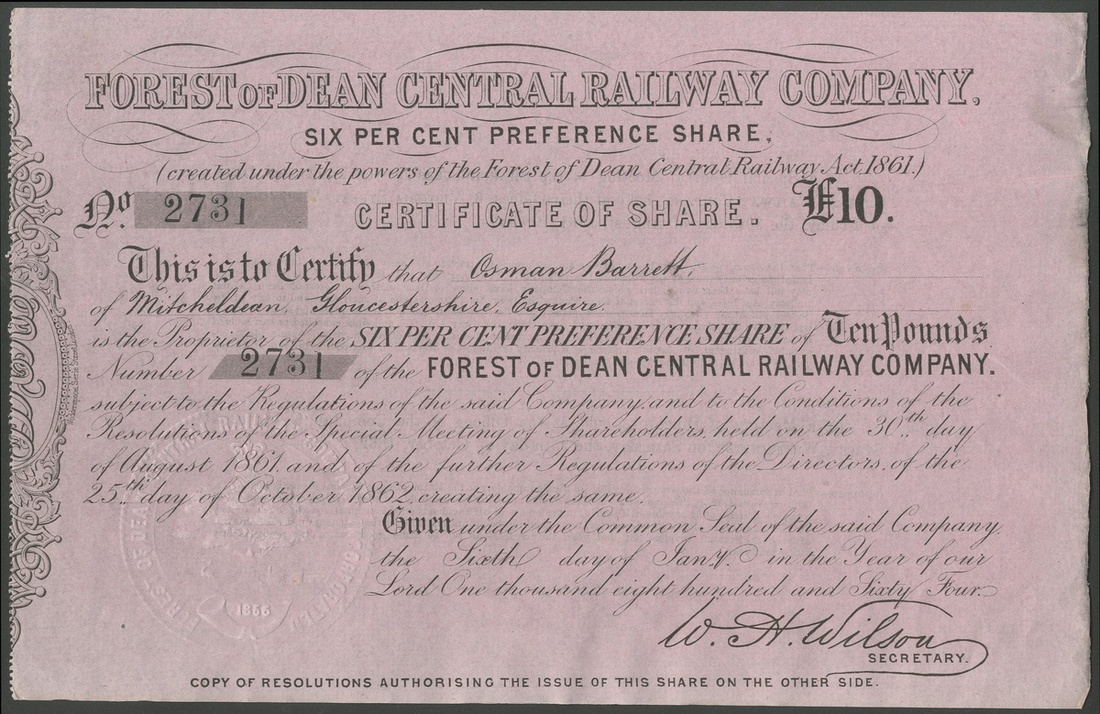 FOREST OF DEAN CENTRAL RAILWAY COMPANY,
SIX PER CENT PREFERENCE SHARE,
(created under the powers of the Forest of Dean Central Railway Act 1861.)
No. 2731 CERTIFICATE OF SHARE. £10.
This is to Certify that Osman Barrett,
of Mitcheldean, Gloucestershire, Esquire.
is the Proprietor of the SIX PER CENT PREFERENCE SHARE of Ten Pounds
Number 2731 of the FOREST OF DEAN CENTRAL RAILWAY COMPANY.
subject to the Regulations of the said Company, and to the Conditions of the
Resolutions of the Special Meeting of Shareholders, held on the 30th day
of August 1861, and of the further Regulations of the Directors, of the
25th day of October 1862, creating the same.
Given under the Common Seal of the said Company,
the Sixth day of Jany. in the Year of our
Lord One thousand eight hundred and Sixty Four.
W. H. Wilson
SECRETARY.
1856
COPY OF RESOLUTIONS AUTHORISING THE ISSUE OF THIS SHARE ON THE OTHER SIDE.